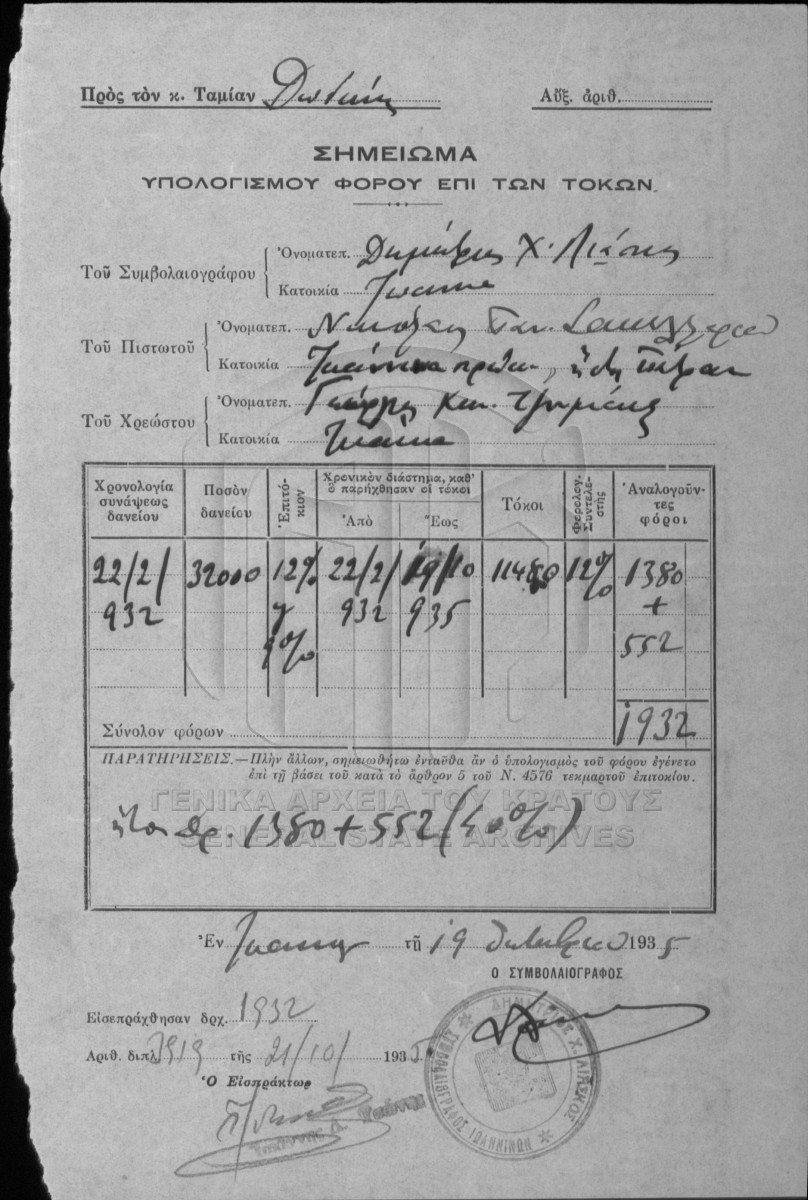 Πρὸς τὸν κ. Ταμίαν
Αὔξ. ἀριθ.
ΣΗΜΕΙΩΜΑ
ΥΠΟΛΟΓΙΣΜΟΥ ΦΟΡΟΥ ΕΠΙ ΤΩΝ ΤΟΚΩΝ
Τοῦ Συμβολαιογράφου
Ὀνοματεπ. Δημήτριος Χ. Λιάσκος
Κατοικία
Τοῦ Πιστωτοῦ
Ὀνοματεπ. Νικόλαος Παν.
Κατοικία Ἰωάννινα
Τοῦ Χρεώστου
Ὀνοματεπ. Γεώργιος Κων.
Κατοικία
Χρονολογία συνάψεως δανείου
Ποσὸν δανείου
Ἐπιτόκιον
Χρονικὸν διάστημα, καθ' ὃ παρήχθησαν οἱ τόκοι
Ἀπὸ
Ἕως
Τόκοι
Φορολογ. Συντελεστὴς
Ἀναλογοῦντες φόροι
22/2/ 32000 12% 22/2/ 19/10 11480 12% 1380
932 932 935 +
9% 552
Σύνολον φόρων 1932
ΠΑΡΑΤΗΡΗΣΕΙΣ.—Πλὴν ἄλλων, σημειωθήτω ἐνταῦθα ἂν ὁ ὑπολογισμὸς τοῦ φόρου ἐγένετο
ἐπὶ τῇ βάσει τοῦ κατὰ τὸ ἄρθρον 5 τοῦ Ν. 4576 τεκμαρτοῦ ἐπιτοκίου.
ΓΕΝΙΚΑ ΑΡΧΕΙΑ ΤΟΥ ΚΡΑΤΟΥΣ
GENERAL STATE ARCHIVES
ἤτοι Δρ. 1380 + 552 (40%)
Ἐν τῇ 19 Ὀκτωβρίου 1935
Ο ΣΥΜΒΟΛΑΙΟΓΡΑΦΟΣ
Εἰσεπράχθησαν δρχ. 1932
Ἀριθ. διπλ. 7919 τῆς 21/10/ 1935
Ὁ Εἰσπράκτωρ
ΔΗΜΗΤΡΙΟΣ Χ. ΛΙΑΣΚΟΣ
ΣΥΜΒΟΛΑΙΟΓΡΑΦΟΣ ΙΩΑΝΝΙΝΩΝ